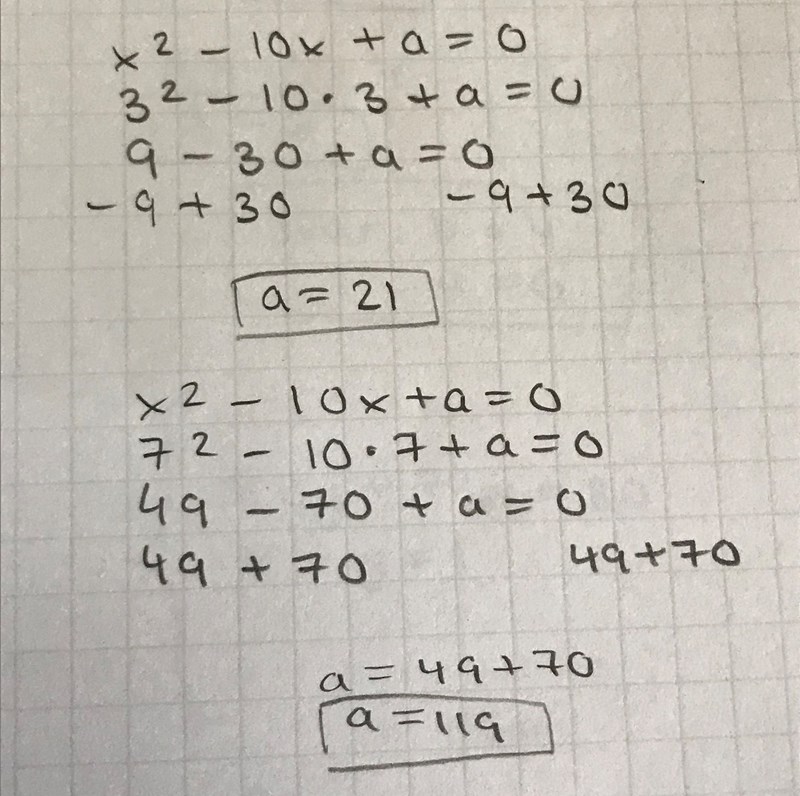 x² - 10x + a = 0
3² - 10·3 + a = 0
9 - 30 + a = 0
- 9 + 30 - 9 + 30
a = 21
x² - 10x + a = 0
7² - 10·7 + a = 0
49 - 70 + a = 0
49 + 70 49 + 70
a = 49 + 70
a = 119